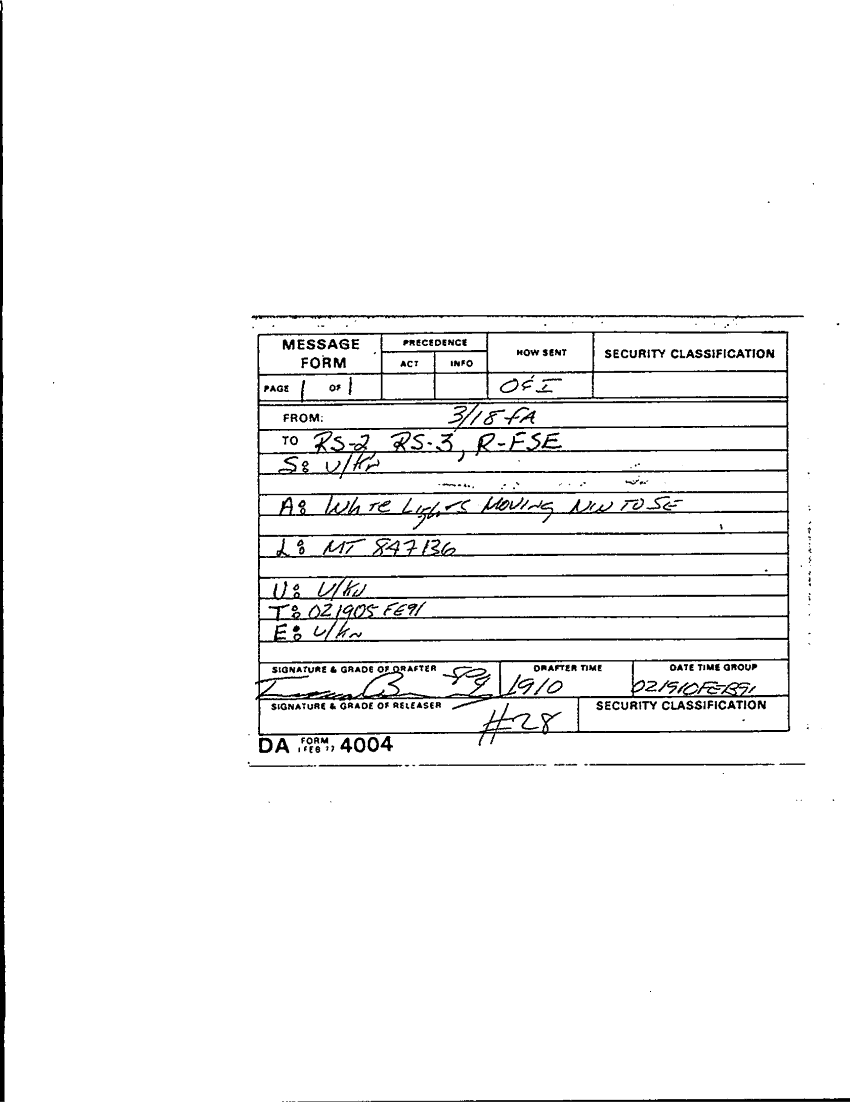 MESSAGE FORM
PRECEDENCE
ACT INFO
HOW SENT
SECURITY CLASSIFICATION
PAGE 1 OF 1
O&I
FROM: 3/18 FA
TO RS-2 RS-3, R-FSE
S: U/KN
A: White Lights MOVING NW TO SE
L: MT 847136
U: U/KN
T: 021905 FE91
E: U/KN
SIGNATURE & GRADE OF DRAFTER
DRAFTER TIME
DATE TIME GROUP
1910
021910FEB91
SIGNATURE & GRADE OF RELEASER
SECURITY CLASSIFICATION
#28
DA FORM 1 FEB 77 4004